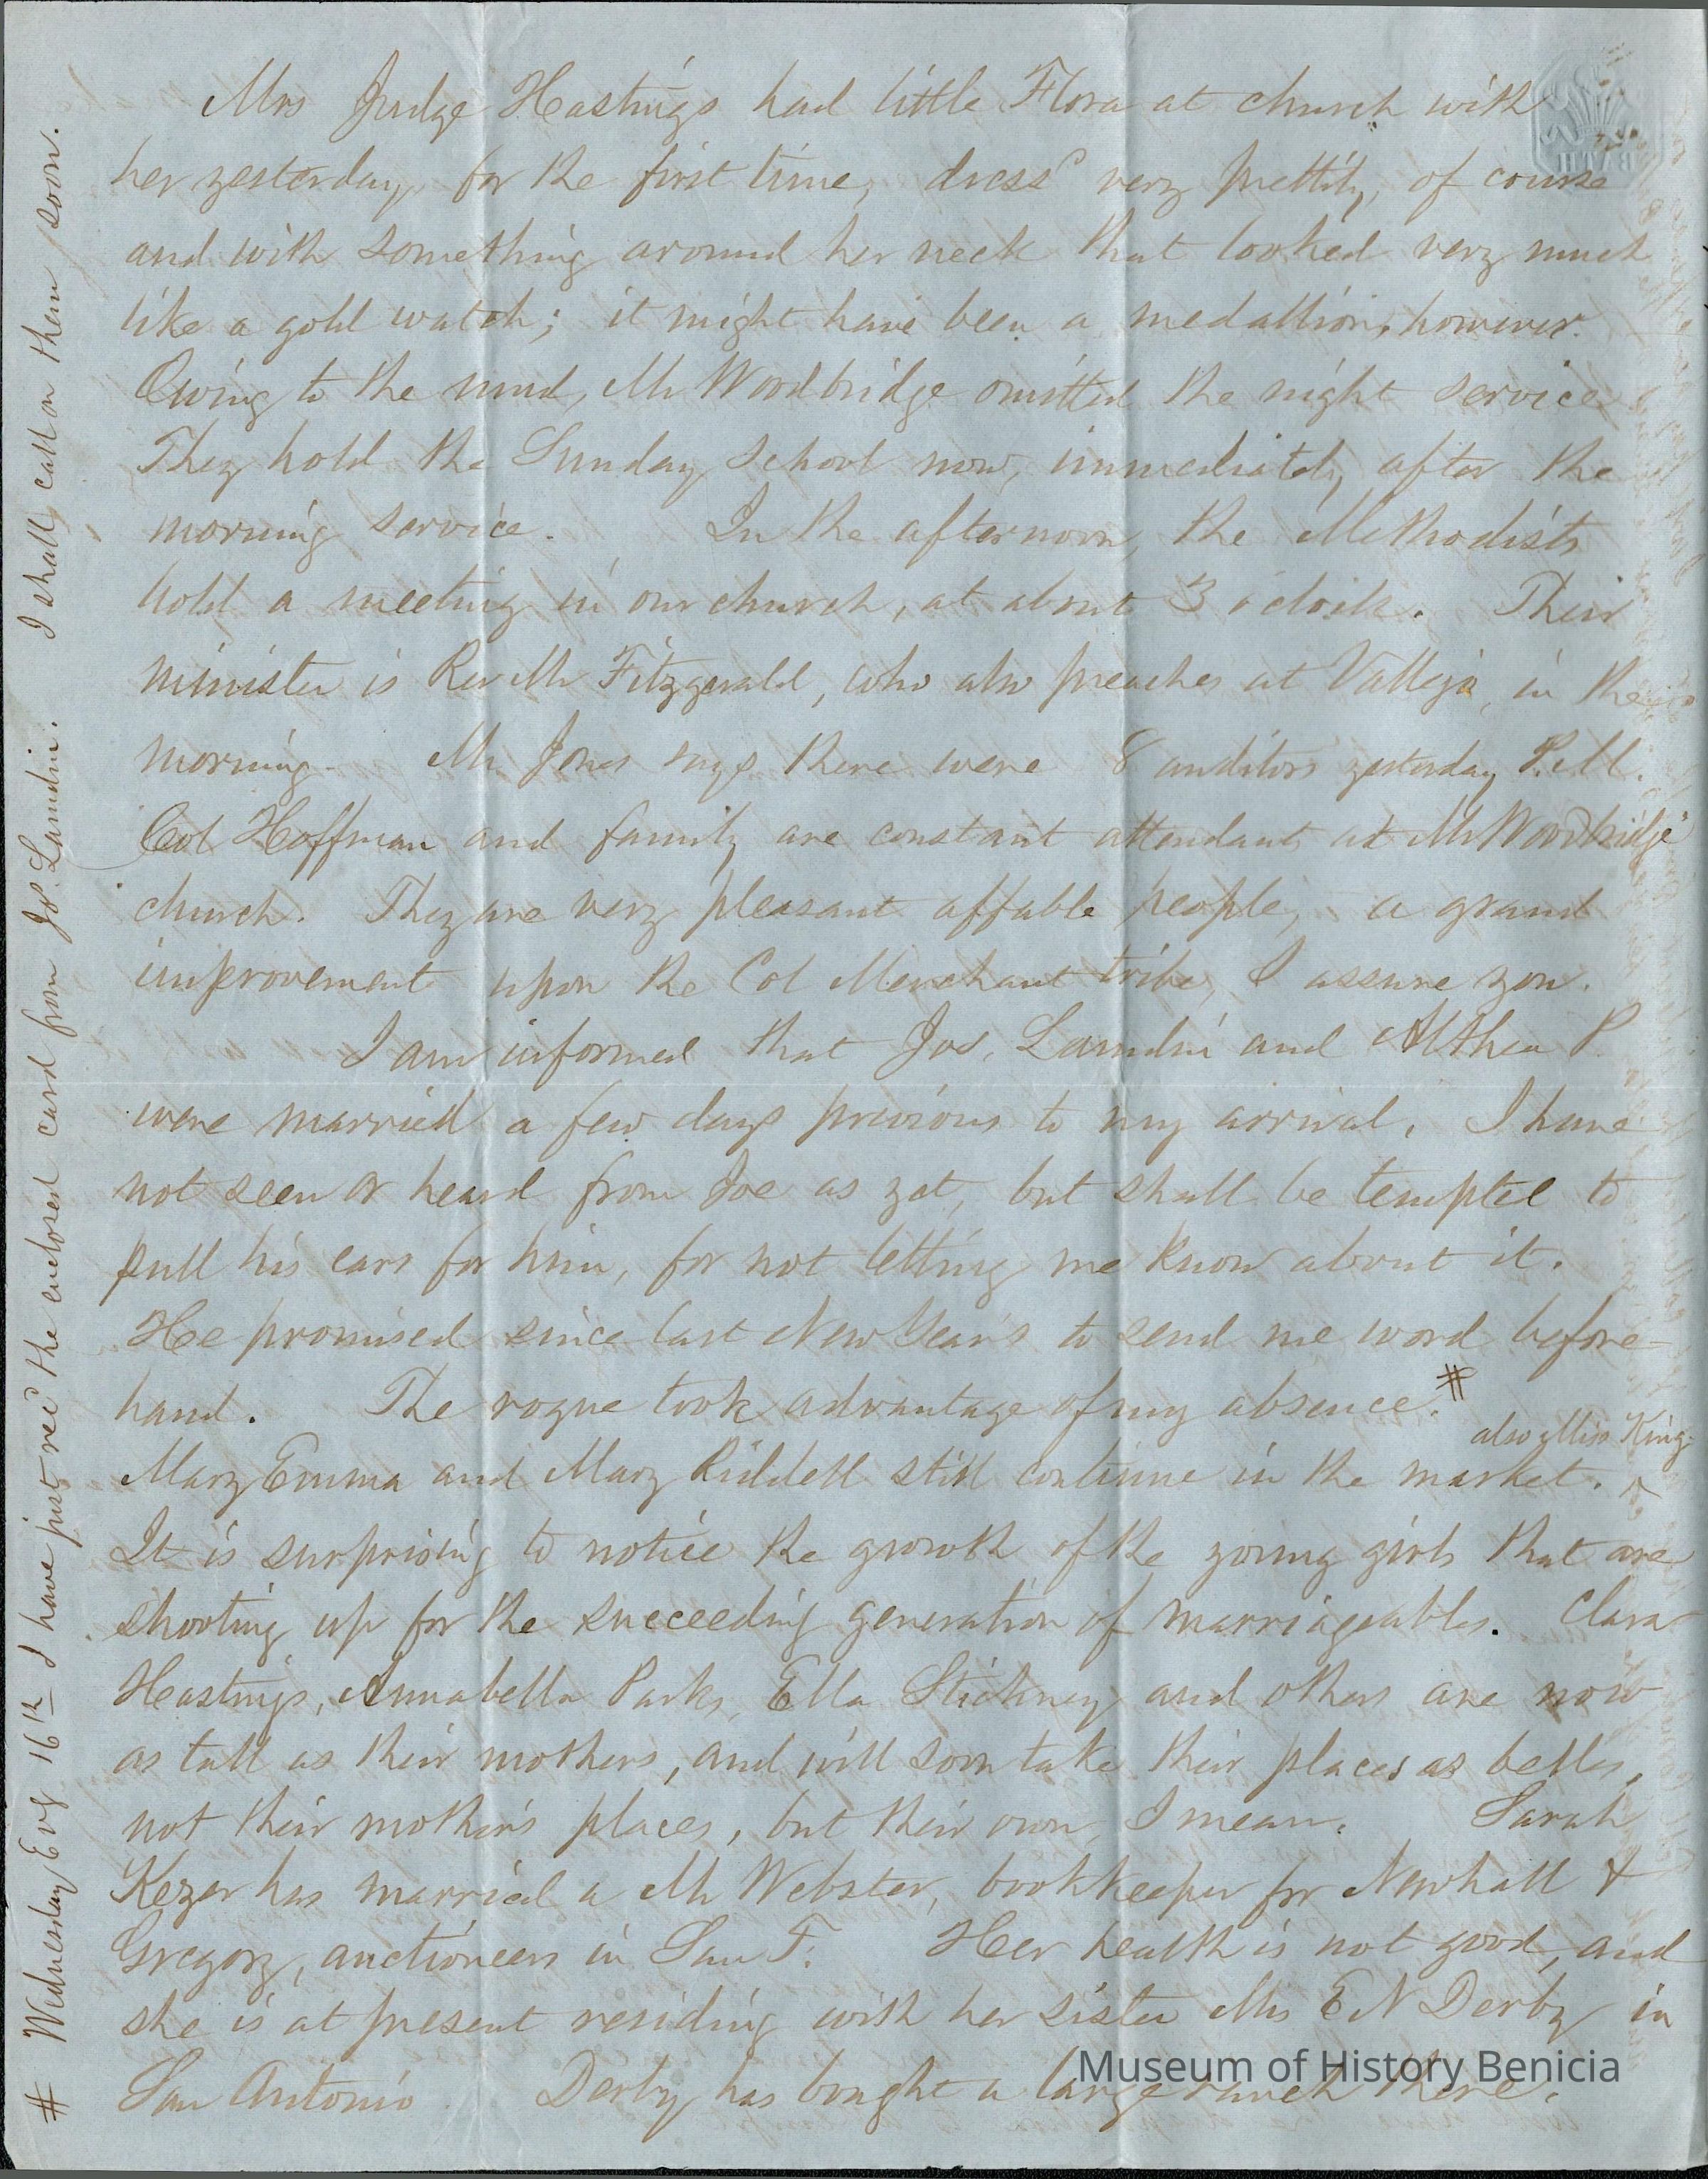 Mrs Judge Hastings had little Flora at church with
her yesterday, for the first time, dressd very prettily, of course
and with something around her neck that looked very much
like a gold watch; it might have been a medallion, however.
Owing to the mud, Mr Woodbridge omitted the night service
They hold the Sunday School now, immediately after the
morning service. In the afternoon, the Methodists
hold a meeting in our church, at about 3 o'clock. Their
minister is Rev Mr Fitzgerald, who also preaches at Vallejo, in the
morning. Mr Jones says there were 8 auditors yesterday P.M.
Col Hoffman and family are constant attendants at Mr Woodbridge's
church. They are very pleasant affable people, a grand
improvement upon the Col Merchant tribe, I assure you.
I am informed that Jos. Lamdin and Althea P.
were married a few days previous to my arrival. I have
not seen or heard from Joe as yet, but shall be tempted to
pull his ears for him, for not letting me know about it.
He promised since last New Year's to send me word before-
hand. The rogue took advantage of my absence. #
also Miss King
Mary Emma and Mary Riddell still continue in the market. ^
It is surprising to notice the growth of the young girls that are
shooting up for the succeeding generation of marriageables. Clara
Hastings, Annabella Parks, Ella Stickney and others are now
as tall as their mothers, and will soon take their places as belles,
not their mother's places, but their own, I mean. Sarah
Kezer has married a Mr Webster, bookkeeper for Newhall &
Gregory, auctioneers in San F. Her health is not good, and
she is at present residing with her sister Mrs E N Derby in
San Antonio. Derby has bought a large ranch there.
# Wednesday Evg 16th I have just recd the enclosed card from Jos. Lamdin. I shall call on them soon.
BATH
Museum of History Benicia